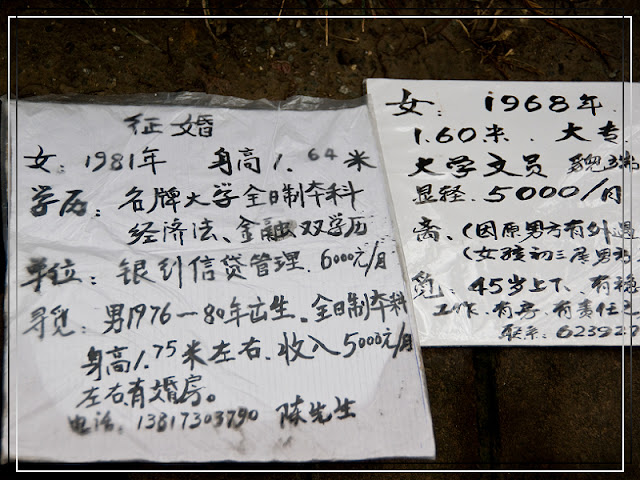 征婚
女：1981年 身高1.64米
学历：名牌大学全日制本科
经济法、金融双学历
单位：银行信贷管理.6000元/月
寻觅：男1976—80年出生、全日制本科
身高1.75米左右.收入5000元/月
左右有婚房。
电话：13817303790 陈先生
女：1968年.
1.60米.大专.
大学文员
显轻.5000/月
离、(因原男方有外遇
(女孩初三居男方
觅：45岁上下、有稳
工作.有房.有责任
联系:623927